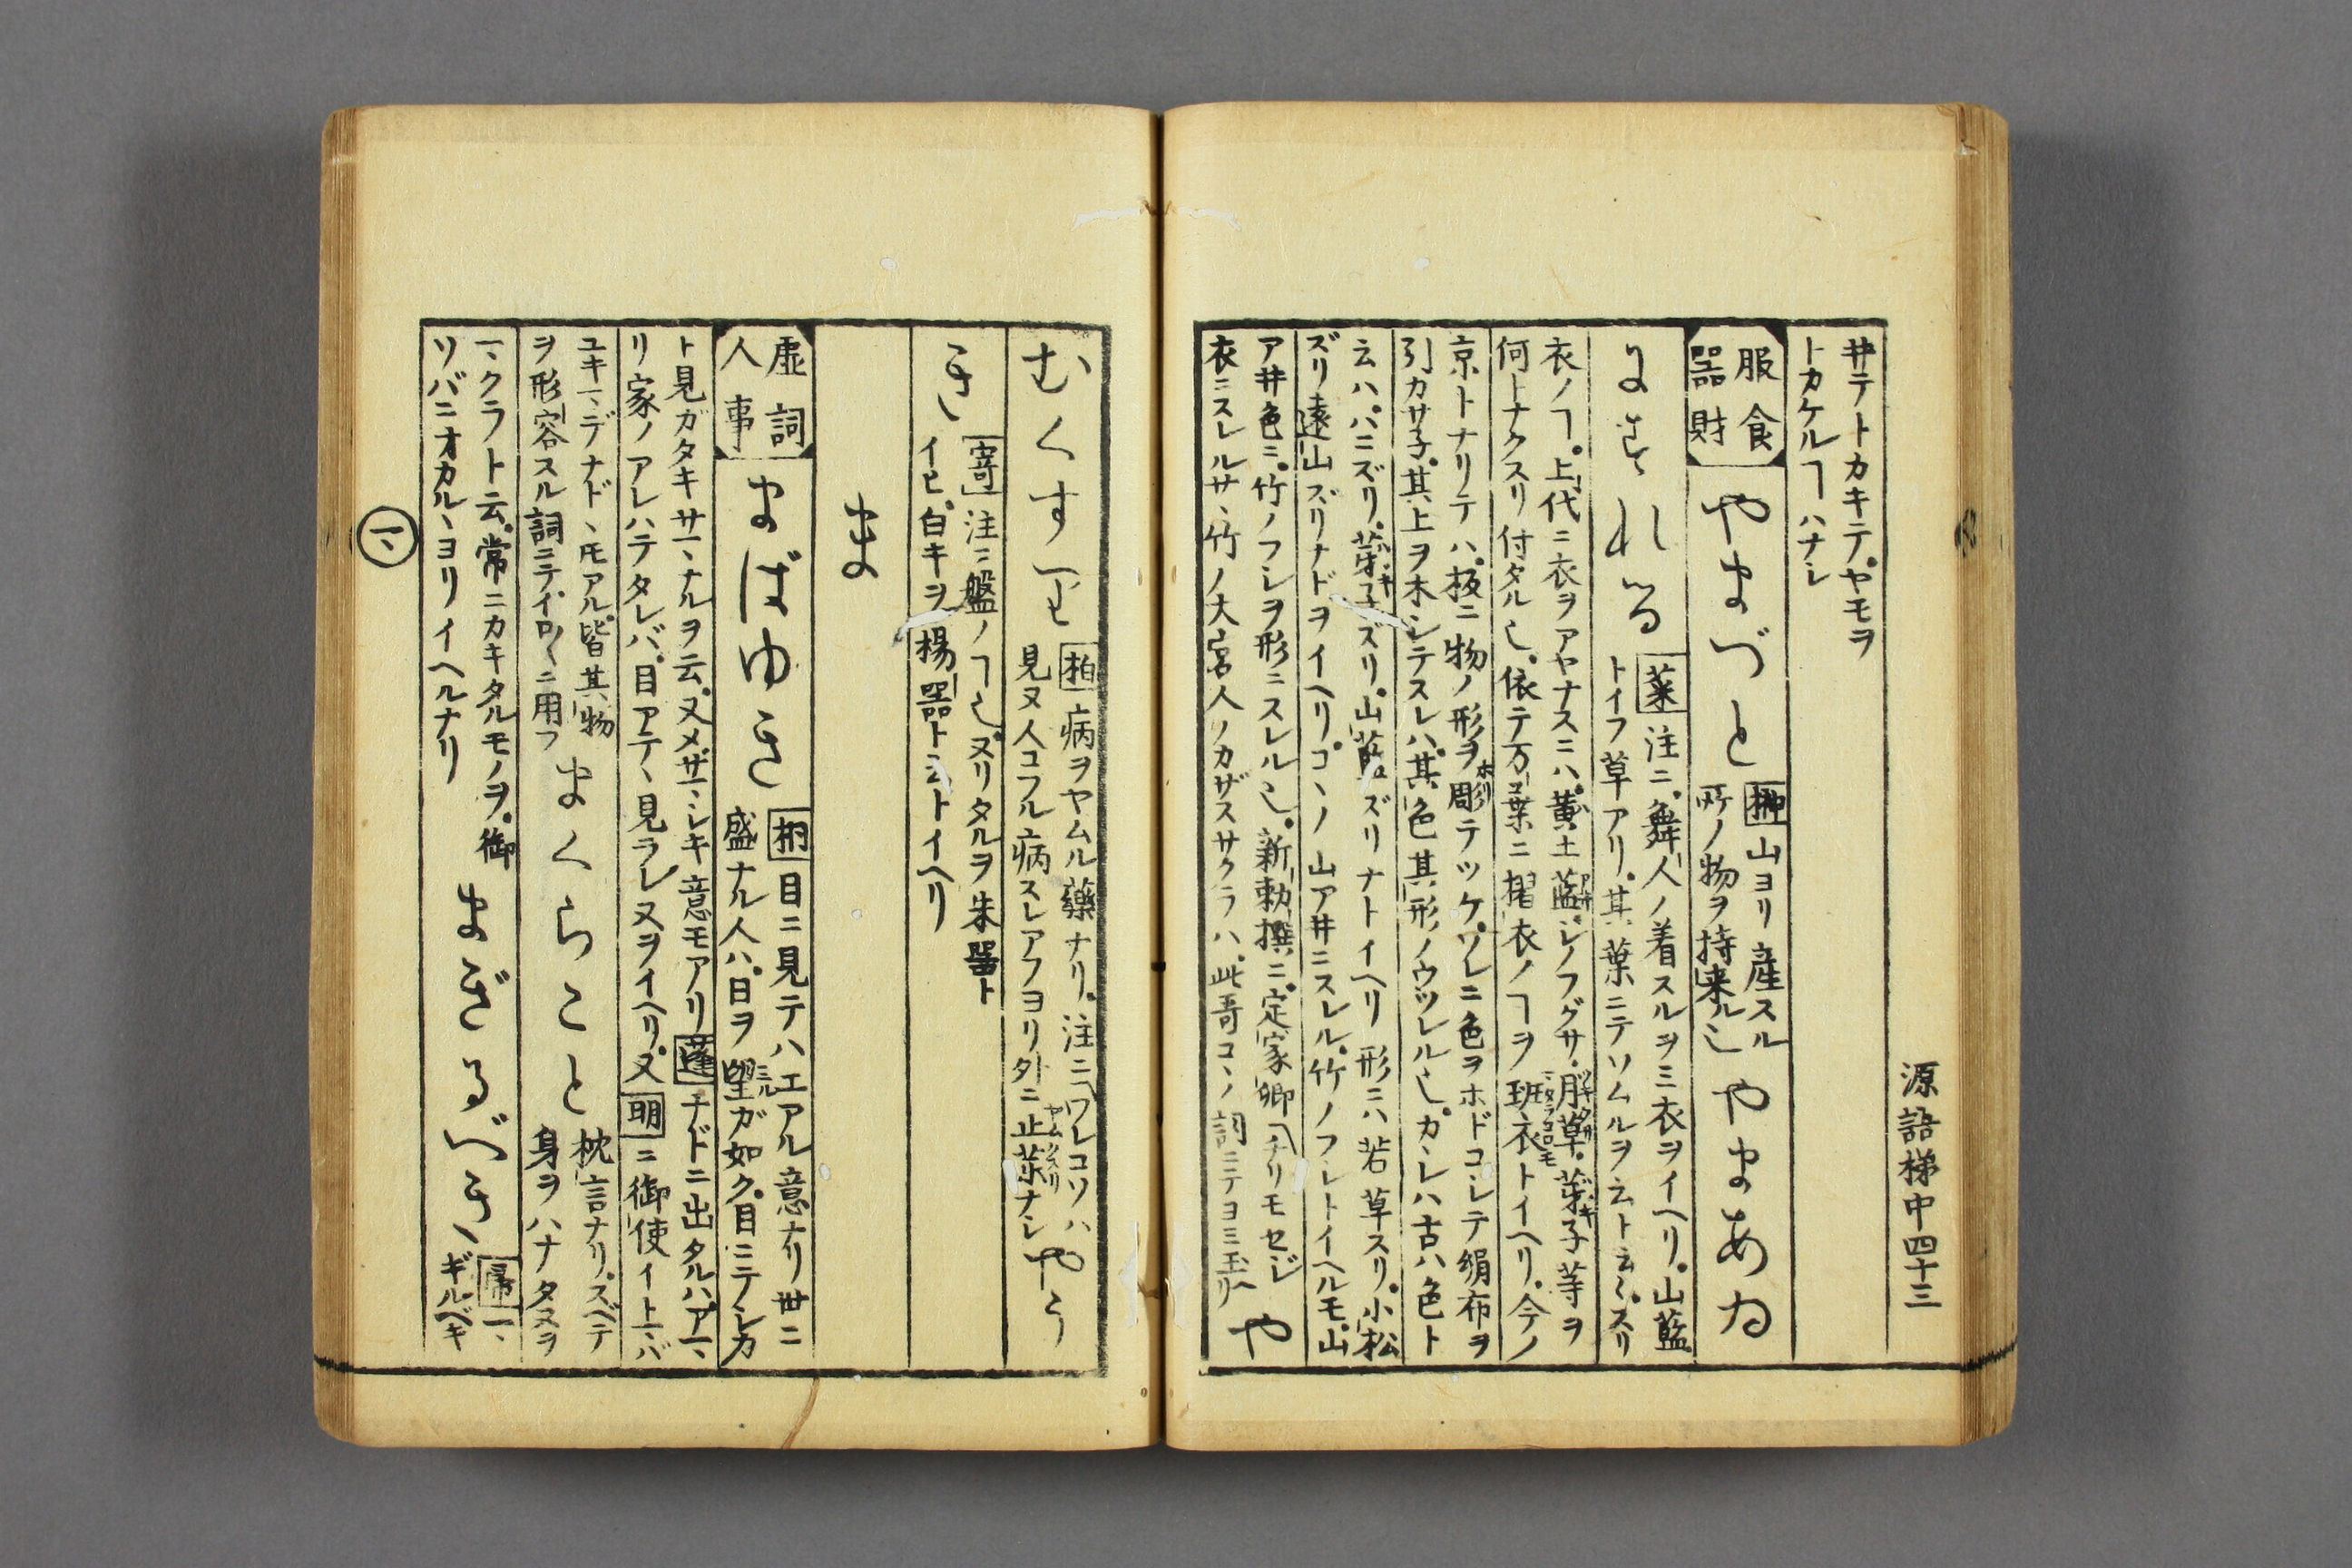 源語梯中四十三
井テトカキテ。ヤモヲ
トカケルヿハナシ
服食
器財
やまづと
榊 山ヨリ産スル
所ノ物ヲ持来ル也
やまあゐ
にすれる
菜 注ニ。舞人ノ着スルヲミ衣ヲイヘリ。山藍
トイフ草アリ。其葉ニテソムルヲ云ト云々。スリ
衣ノヿ。上代ニ衣ヲアヤナスニハ。黄土藍。シノフグサ。月草。芽子等ヲ
何トナクスリ付タル也。依テ万葉ニ摺衣ノヿヲ班衣トイヘリ。今ノ
京トナリテハ。板ニ物ノ形ヲ彫テツケ。ソレニ色ヲホドコシテ絹布ヲ
引カサ子。其上ヲ木シテスレハ。其色其形ノウツレル也。カヽレハ古ハ色ト
云ハ。ハニズリ。芽子ズリ。山藍ズリナトイヘリ形ニハ若草スリ。小松
ズリ遠山ズリナドヲイヘリ。コヽノ山ア井ニスレル。竹ノフシトイヘルモ。山
ア井色ニ。竹ノフシヲ形ニスレル也。新勅撰ニ。定家卿〽チリモセジ
衣ニスレルサヽ竹ノ大宮人ノカザスサクラハ。此哥コヽノ詞ニテヨミ玉ヘリ
や
むくすり
柏 病ヲヤムル藥ナリ。注ニ〽ワレコソハ
見ヌ人コフル病スレアフヨリ外ニ止藥ナシ
やう
き
寄 注ニ盤ノヿ也。ヌリタルヲ朱器ト
イヒ。白キヲ楊器トミトイヘリ
ま
虚詞
人事
まばゆき
桐 目ニ見テハエアル意ナリ世ニ
盛ナル人ハ。日ヲ望ガ如ク。目ニテシカ
ト見ガタキサマヽナルヲ云。又メザマシキ意モアリ蓬ナドニ出タルハ。アマ
リ家ノアレハテタレバ。目アテヽ見ラレヌヲイヘリ。又明ニ御使イトマバ
ユキマデナドヽモアル。皆其物
ヲ形容スル詞ニテイロ〳〵ニ用フ
まくらこと
枕言ナリ。スベテ
身ヲハナタヌヲ
マクラト云。常ニカキタルモノヲ。御
まぎるべき
帚 マ
ギルベキ
ソバニオカルヽヨリイヘルナリ